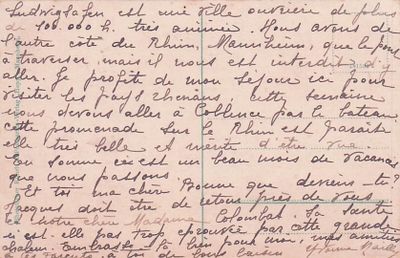 Ludwigshafen est une ville ouvrière de plus
de 100.000 h. très animée. Nous avons de
l'autre côté du Rhin, Mannheim, que le pont
à traverser, mais il nous est interdit d'y
aller. Je profite de mon séjour ici pour
visiter les pays rhénans, cette semaine
nous devons aller à Coblence par le bateau
cette promenade sur le Rhin est paraît
elle très belle et mérite d'être vue.
En somme c'est un beau mois de vacances
que nous passons.
Et toi ma chère Bonne que deviens-tu?
Jacques doit être de retour près de vous,
et notre chère Madame Colombat. Sa santé
n'est-elle pas trop éprouvée par cette grande
chaleur. Embrasse-la bien pour moi, mes amitiés
à tes parents, à toi de bons baisers